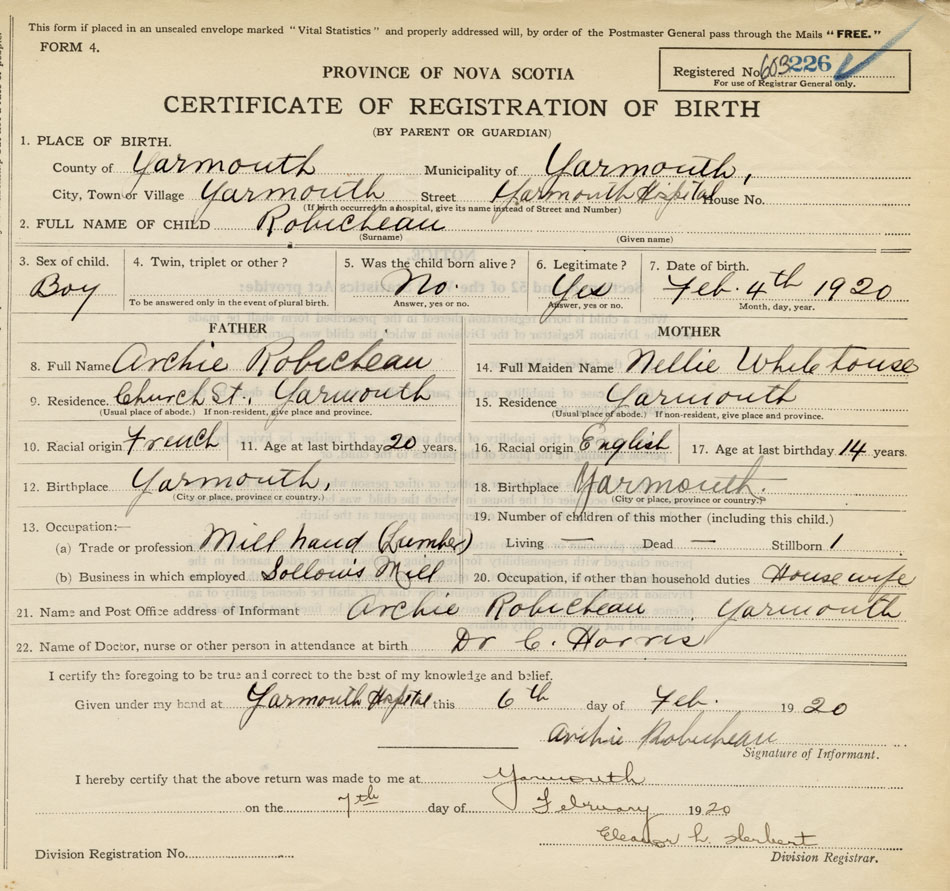 This form if placed in an unsealed envelope marked "Vital Statistics" and properly addressed will, by order of the Postmaster General pass through the Mails "FREE."
FORM 4.
PROVINCE OF NOVA SCOTIA
Registered No. 603226
For use of Registrar General only.
CERTIFICATE OF REGISTRATION OF BIRTH
(BY PARENT OR GUARDIAN)
1. PLACE OF BIRTH.
County of Yarmouth Municipality of Yarmouth,
City, Town or Village Yarmouth Street Yarmouth Hospital House No.
(If birth occurred in a hospital, give its name instead of Street and Number)
2. FULL NAME OF CHILD Robicheau
(Surname) (Given name)
3. Sex of child. 4. Twin, triplet or other? 5. Was the child born alive? 6. Legitimate? 7. Date of birth.
Boy No. Yes Feb. 4th 1920
To be answered only in the event of plural birth. Answer, yes or no. Answer, yes or no. Month, day, year.
FATHER MOTHER
8. Full Name Archie Robicheau 14. Full Maiden Name Nellie Whitehouse
9. Residence. Church St., Yarmouth 15. Residence Yarmouth
(Usual place of abode.) If non-resident, give place and province. (Usual place of abode.) If non-resident, give place and province.
10. Racial origin French 11. Age at last birthday 20 years. 16. Racial origin English 17. Age at last birthday 14 years.
12. Birthplace Yarmouth, 18. Birthplace Yarmouth.
(City or place, province or country.) (City or place, province or country.)
13. Occupation:— 19. Number of children of this mother (including this child.)
(a) Trade or profession Mill hand (Lumber) Living — Dead — Stillborn 1
(b) Business in which employed Sollows Mill 20. Occupation, if other than household duties Housewife
21. Name and Post Office address of Informant Archie Robicheau Yarmouth
22. Name of Doctor, nurse or other person in attendance at birth Dr C. Harris
I certify the foregoing to be true and correct to the best of my knowledge and belief.
Given under my hand at Yarmouth Hospital this 6th day of Feb. 1920
Archie Robicheau
Signature of Informant.
I hereby certify that the above return was made to me at Yarmouth
on the 7th day of February 1920
Eleanor L. Herbert
Division Registration No. Division Registrar.